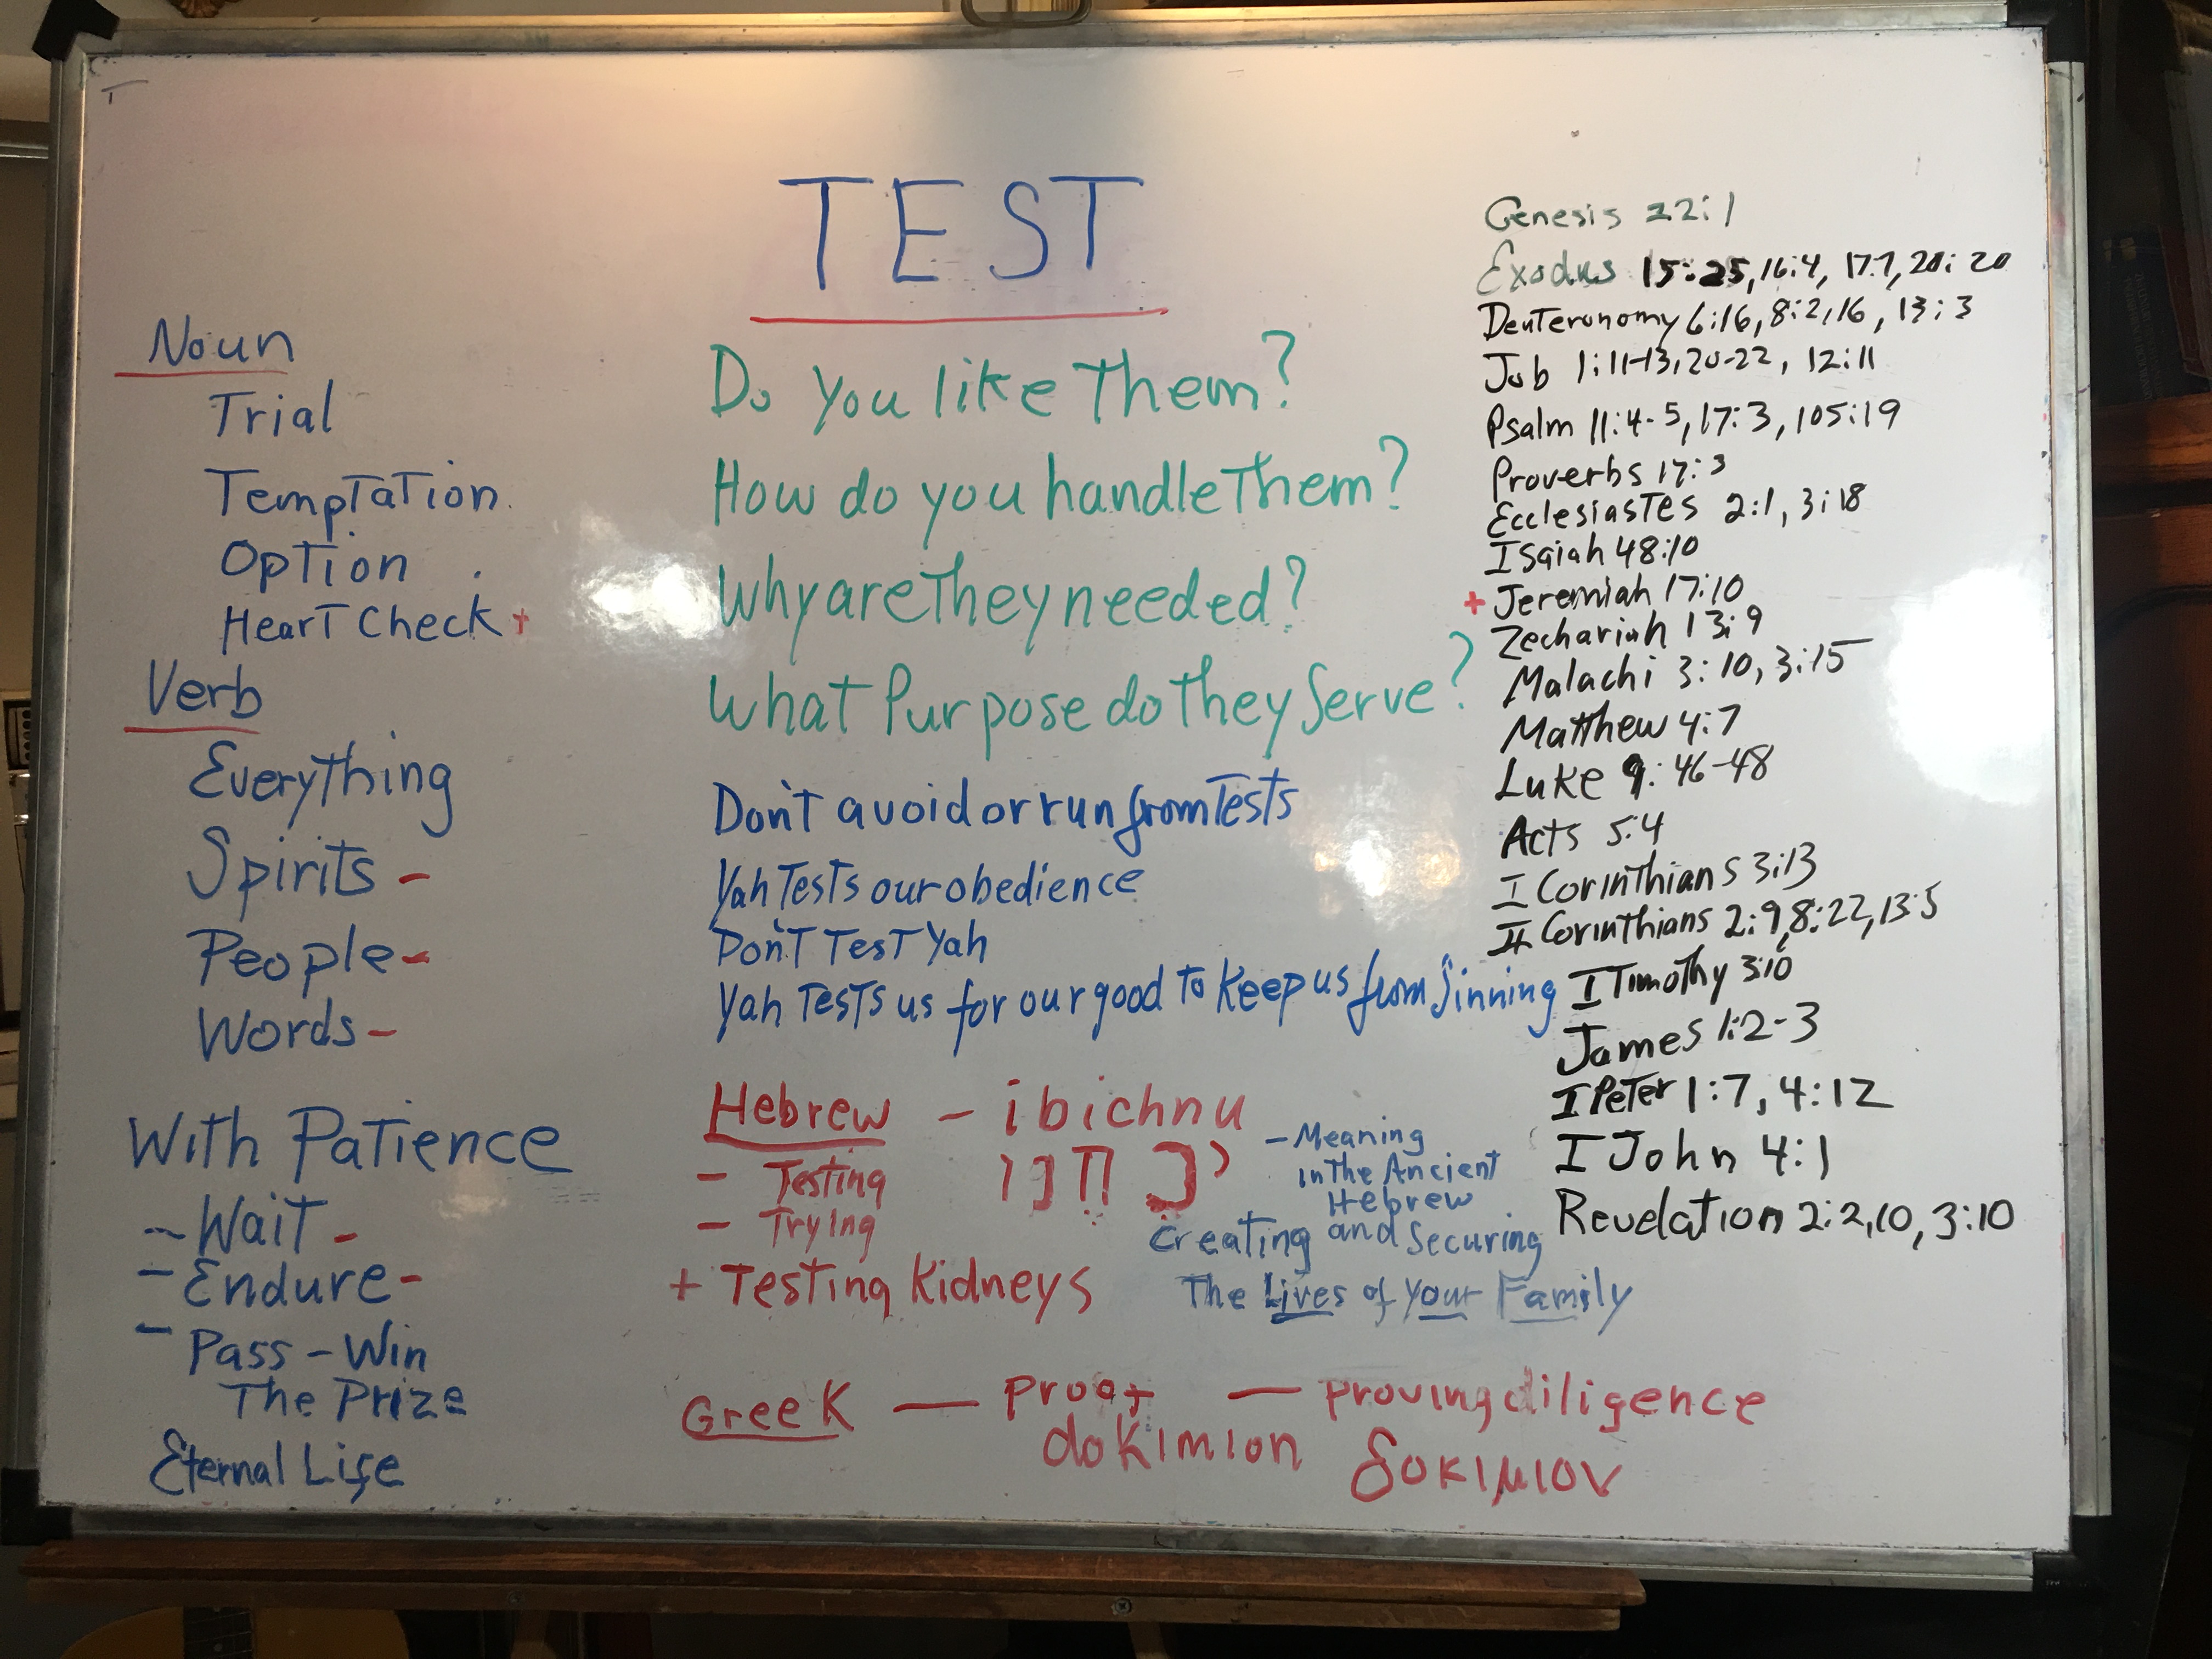 TEST
Noun
Trial
Temptation
Option
Heart Check +
Verb
Everything
Spirits -
People -
Words -
With Patience
- Wait -
- Endure -
- Pass - Win
The Prize
Eternal Life
Do you like them?
How do you handle them?
Why are they needed?
What Purpose do they Serve?
Don't avoid or run from Tests
Yah Tests our obedience
Don't Test Yah
Yah Tests us for our good to keep us from sinning
Hebrew - ibichnu
- Testing יבחנו
- Trying
+ Testing Kidneys
- Meaning
in the Ancient
Hebrew
Creating and Securing
The Lives of your Family
Greek — Proof — proving diligence
dokimion δοκιμιον
Genesis 22:1
Exodus 15:25, 16:4, 17:7, 20:20
Deuteronomy 6:16, 8:2,16, 13:3
Job 1:11-13, 20-22, 12:11
Psalm 11:4-5, 17:3, 105:19
Proverbs 17:3
Ecclesiastes 2:1, 3:18
Isaiah 48:10
+ Jeremiah 17:10
Zechariah 13:9
Malachi 3:10, 3:15
Matthew 4:7
Luke 9:46-48
Acts 5:4
I Corinthians 3:13
II Corinthians 2:9, 8:22, 13:5
I Timothy 3:10
James 1:2-3
I Peter 1:7, 4:12
I John 4:1
Revelation 2:2,10, 3:10